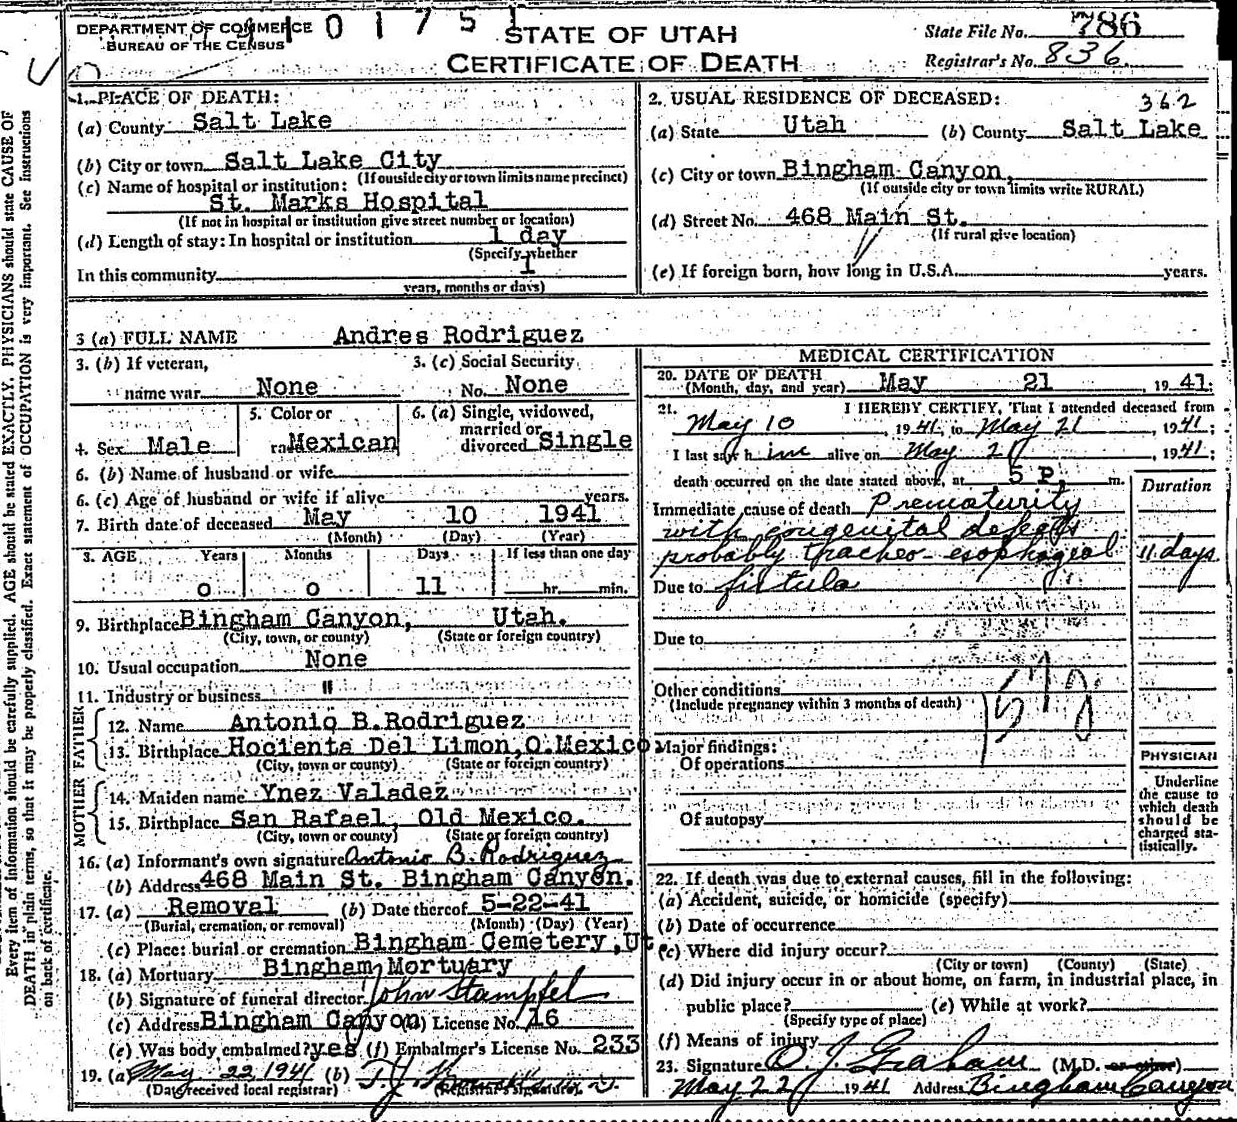 DEPARTMENT OF COMMERCE
BUREAU OF THE CENSUS
101751
STATE OF UTAH
CERTIFICATE OF DEATH
State File No. 786
Registrar's No. 836
1. PLACE OF DEATH:
(a) County Salt Lake
(b) City or town Salt Lake City
(If outside city or town limits name precinct)
(c) Name of hospital or institution:
St. Marks Hospital
(If not in hospital or institution give street number or location)
(d) Length of stay: In hospital or institution 1 day
(Specify whether
In this community 1
years, months or days)
2. USUAL RESIDENCE OF DECEASED: 362
(a) State Utah (b) County Salt Lake
(c) City or town Bingham Canyon,
(If outside city or town limits write RURAL)
(d) Street No. 468 Main St.
(If rural give location)
(e) If foreign born, how long in U.S.A. years.
3 (a) FULL NAME Andres Rodriguez
3. (b) If veteran,
name war None
3. (c) Social Security
No. None
4. Sex Male
5. Color or
race Mexican
6. (a) Single, widowed,
married or
divorced Single
6. (b) Name of husband or wife
6. (c) Age of husband or wife if alive years.
7. Birth date of deceased May 10 1941
(Month) (Day) (Year)
8. AGE Years Months Days If less than one day
0 0 11 hr. min.
9. Birthplace Bingham Canyon, Utah.
(City, town, or county) (State or foreign country)
10. Usual occupation None
11. Industry or business "
FATHER
12. Name Antonio B.Rodriguez
13. Birthplace Hocienta Del Limon,O.Mexico
(City, town or county) (State or foreign country)
MOTHER
14. Maiden name Ynez Valadez
15. Birthplace San Rafael, Old Mexico.
(City, town or county) (State or foreign country)
16. (a) Informant's own signature Antonio B. Rodriguez
(b) Address 468 Main St. Bingham Canyon.
17. (a) Removal (b) Date thereof 5-22-41
(Burial, cremation, or removal) (Month) (Day) (Year)
(c) Place: burial or cremation Bingham Cemetery,Ut.
18. (a) Mortuary Bingham Mortuary
(b) Signature of funeral director John Stampfel
(c) Address Bingham Canyon (d) License No. 16
(e) Was body embalmed? yes (f) Embalmer's License No. 233
19. (a) May 22, 1941 (b) T. J.
(Date received local registrar) (Registrar's signature)
MEDICAL CERTIFICATION
20. DATE OF DEATH
(Month, day, and year) May 21, 1941.
21. I HEREBY CERTIFY, That I attended deceased from
May 10, 1941, to May 21, 1941;
I last saw him alive on May 21, 1941;
death occurred on the date stated above, at 5 P. m.
Duration
Immediate cause of death Prematurity
with congenital defects
probably tracheo-esophageal 11 days
Due to fistula
Due to
Other conditions
(Include pregnancy within 3 months of death)
Major findings:
Of operations
Of autopsy
PHYSICIAN
Underline
the cause to
which death
should be
charged sta-
tistically.
22. If death was due to external causes, fill in the following:
(a) Accident, suicide, or homicide (specify)
(b) Date of occurrence
(c) Where did injury occur?
(City or town) (County) (State)
(d) Did injury occur in or about home, on farm, in industrial place, in
public place? (e) While at work?
(Specify type of place)
(f) Means of injury
23. Signature O. J. Graham (M.D. or other)
May 22 1941 Address Bingham Canyon
Every item of information should be carefully supplied. AGE should be stated EXACTLY. PHYSICIANS should state CAUSE OF
DEATH in plain terms, so that it may be properly classified. Exact statement of OCCUPATION is very important. See instructions
on back of certificate.